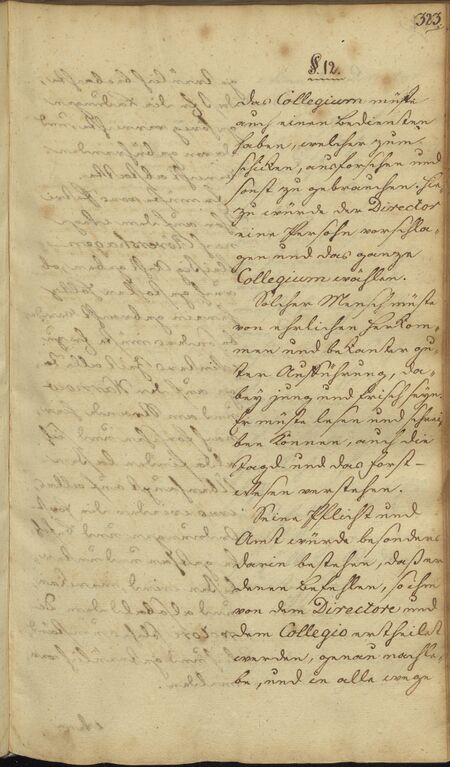 323
§. 12.
Das Collegium müste
auch einen Bedienten
haben, welcher zum
schicken, ausforschen und
sonst zu gebrauchen. Hie-
zu würde der Director
eine Persohn vorschla-
gen und das ganze
Collegium wählen.
Solcher Mensch müste
von ehrlichen Herkom-
men und bekanter gu-
ter Aufführung, da-
bey jung und frisch seyn.
Er müste lesen und schrei-
ben können, auch die
Jagd und das Forst-
wesen verstehen.
Seine Pflicht und
Amt würde besonders
darin bestehen, daß er
denen Befehlen, so ihm
von dem Directore und
dem Collegio ertheilet
werden, genau nachle-
be, und in alle wege